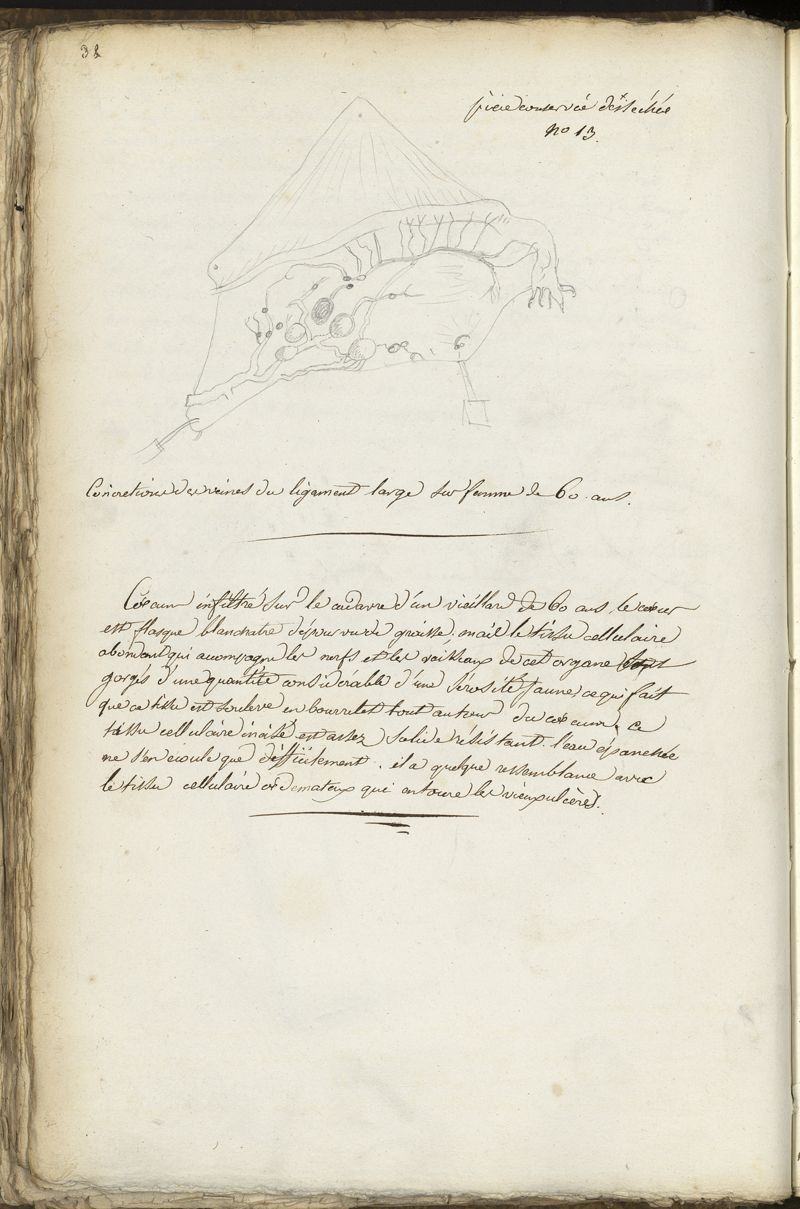 38
pièce conservée dessechée
no 13.
Concretions des veines du ligament large sur femme de 60 ans.
Cœœur infiltré sur le cadavre d'un vieillard de 60 ans, le cœur
est flasque blanchatre dépourvu de graisse, mais le tissu cellulaire
abondant qui accompagne les nerfs et les vaisseaux de cet organe
gorgés d'une quantité considérable d'une sérosité jaune ce qui fait
que ce tissu est soulevé en bourrelet tout autour du cœur. ce
tissu cellulaire incisé est assez solide résistant. l'eau épanchée
ne s'en ecoule que difficilement. il a quelque ressemblance avec
le tissu cellulaire œdemateux qui entoure les vieux ulcères.